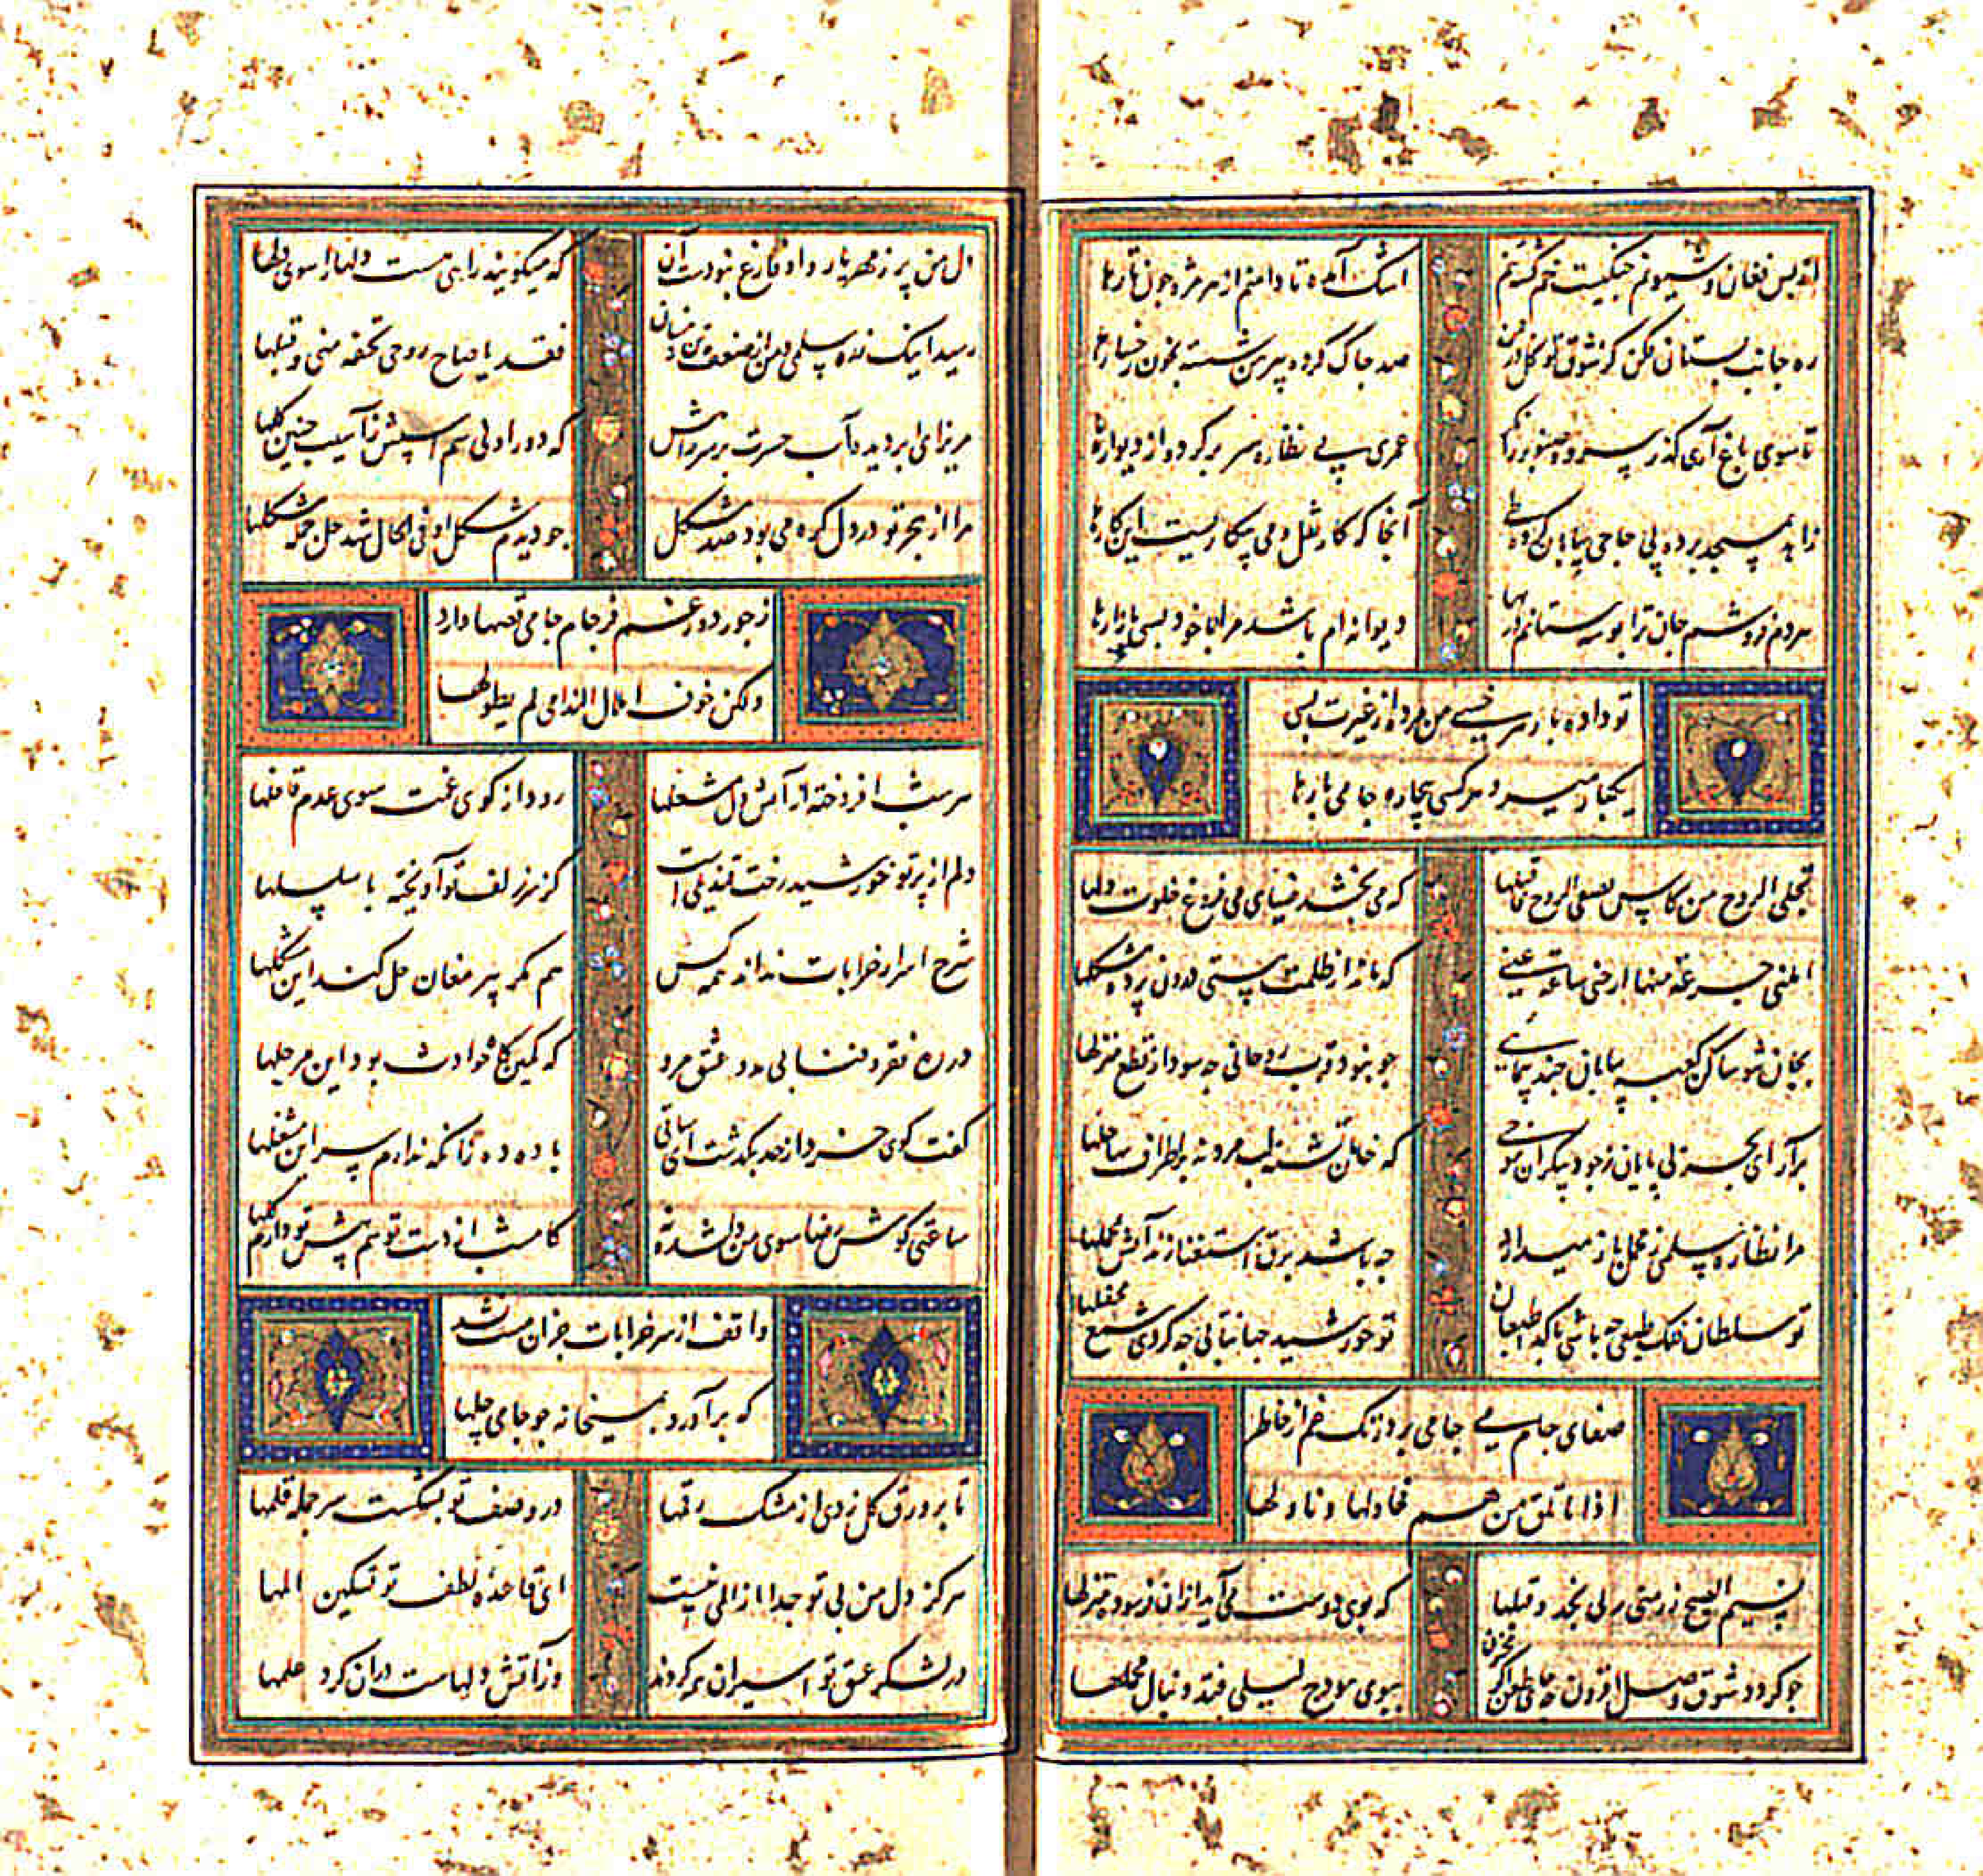 از بس فغان و شیونم چنگیست خم گشته تنم
اشک آمده تا دامنم از هر مژه چون تارها
ره جانب بستان فکن کز شوق تو گل در چمن
صد چاک کرده پیرهن شسته بخون رخسارها
تا سوی باغ آری گذر سرو و صنوبر را نگر
عمری پی نظاره سر بر کرده از دیوارها
زاهد بمسجد برده پی حاجی بیابان کرده طی
آنجا که کار نقل و می بیکاریست این کارها
هر دم فروشم جان ترا بوسه ستانم در بها
دیوانه ام باشد مرا با خود بسی بازارها
تو داده بار هر خسی من مرده از غیرت بسی
یکبار میرد هر کسی بیچاره جامی بارها
تجلی الروح من کاس تصفی الروح فاقبلها
که می بخشد ضیای می فروغ خلوت دلها
انلنی جرعة منها ارحنی ساعة عنی
که ماند از ظلمت هستی درون پرده مشکلها
بجان شو ساکن کعبه بیابان چند پیمایی
چو نبود قرب روحانی چه سود از قطع منزلها
برآر ای بحر بی پایان ز جود بیکران موجی
که خلقی تشنه لب مردند بر اطراف ساحلها
مرا نظاره سلمی ز محمل باز میدارد
چه باشد برق استغنا زند آتش بمحملها
تو سلطان فلک طبعی چه باشی با گدا طبعان
تو خورشید جهانتابی چه گردی شمع محفلها
صفای جام می جامی برد زنگ غم از خاطر
اذا ما تلق من هم فحاولها و ناولها
نسیم الصبح زر منی ربی نجد و قبلها
که بوی دوست می آید ازان فرسوده منزلها
چو گردد شوق وصل افزون چه جای طعن اگر مجنون
ببوی هودج لیلی فتد دنبال محملها
دل من پر ز مهر یار و او فارغ نبودست آن
که میگویند راهی هست دلها را سوی دلها
رسید اینک ز ره سلمی و من از ضعف تن زینسان
فخذ یا صاح روحی تحفة منی و قبلها
مریز ای ابر دیده آب حسرت بر سر راهش
که دور اولی سم اسپش ز آسیب چنین گلها
مرا از هجر تو در دل گره می بود صد مشکل
چو دیدم شکل او فی الحال شد حل جمله مشکلها
ز جور دور غم فرجام جامی قصها دارد
ولکن خوف املال الندامی لم یطولها
هر شب افروخته از آتش دل مشعلها
رود از کوی غمت سوی عدم قافلها
دلم از پرتو خورشید رخت قندیلی است
کز سر زلف تو آویخته با سلسلها
شرح اسرار خرابات نداند همه کس
هم مگر پیر مغان حل کند این مشکلها
در ره فقر و فنا بی مدد عشق مرو
که کمین گاه حوادث بود این مرحلها
گفت گوی خرد از حد بگذشت ای ساقی
باده ده زانکه ندارم سر این مشغلها
ساعتی گوش رضا سوی من دلشده نه
کامشب از دست تو هم پیش تو دارم گلها
واقف از سر خرابات جز آن مست نشد
که برآورد بمیخانه چو جامی چلها
تا بر ورق گل زدی از مشک رقمها
در وصف تو بشکست سر جمله قلمها
هرگز دل من بی تو جدا از المی نیست
ای قاعده لطف تو تسکین المها
در لشکر عشق تو اسیران همه کردند
وز آتش دلهاست دران کرد علمها